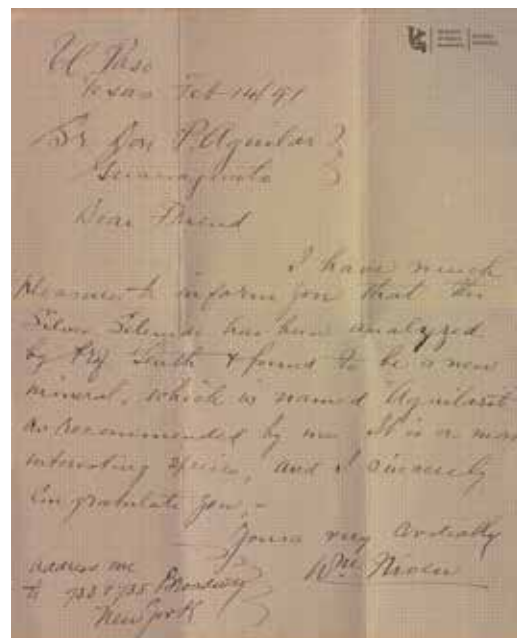 El Paso
Texas Feb 14/91
Sr Don P Aguilar
Guanajuato
Dear Friend
I have much
pleasure to inform you that the
Silver Selenide has been analyzed
by Prof Genth & found to be a new
mineral, which is named "Aguilarit
as recommended by me. It is a most
interesting species, and I sincerely
Congratulate you, -
Yours very Cordially
Wm Niven
address me
to 733 & 735 Broadway
New York